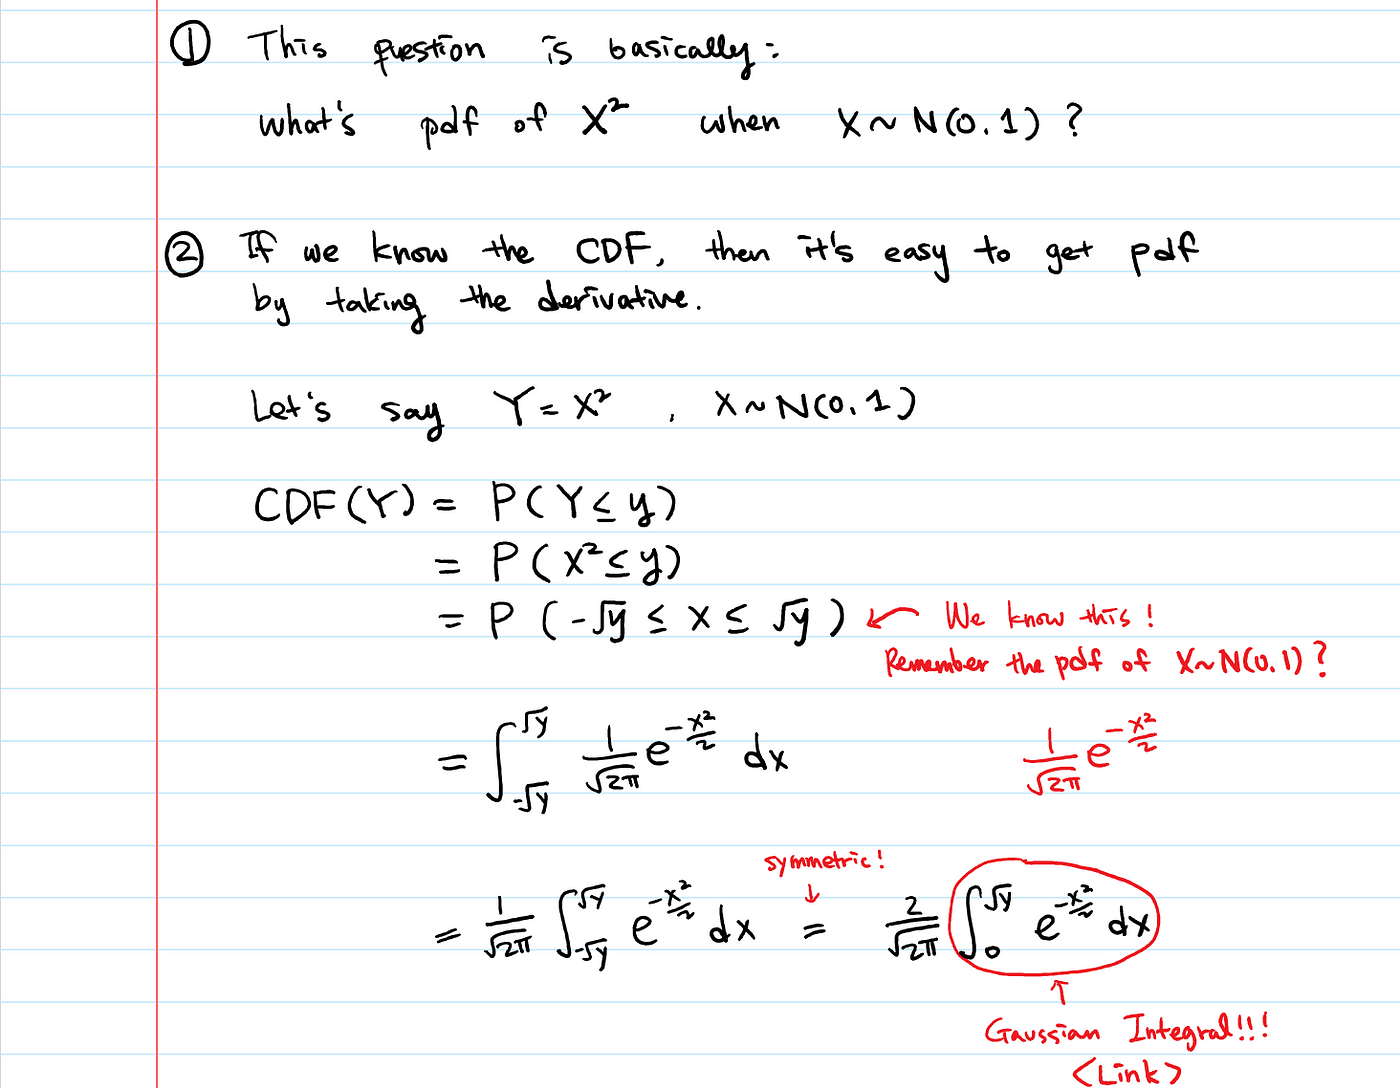 ① This question is basically:
what's pdf of X² when X ~ N(0.1) ?
② If we know the CDF, then it's easy to get pdf
by taking the derivative.
Let's say Y = X² , X ~ N(0.1)
CDF(Y) = P(Y ≤ y)
= P(X² ≤ y)
= P(-√y ≤ x ≤ √y) ← We know this!
Remember the pdf of X ~ N(0.1)?
= ∫_{-√y}^{√y} 1/√2π e^{-x²/2} dx 1/√2π e^{-x²/2}
symmetric!
↓
= 1/√2π ∫_{-√y}^{√y} e^{-x²/2} dx = 2/√2π ∫_0^{√y} e^{-x²/2} dx
↑
Gaussian Integral!!!
<Link>